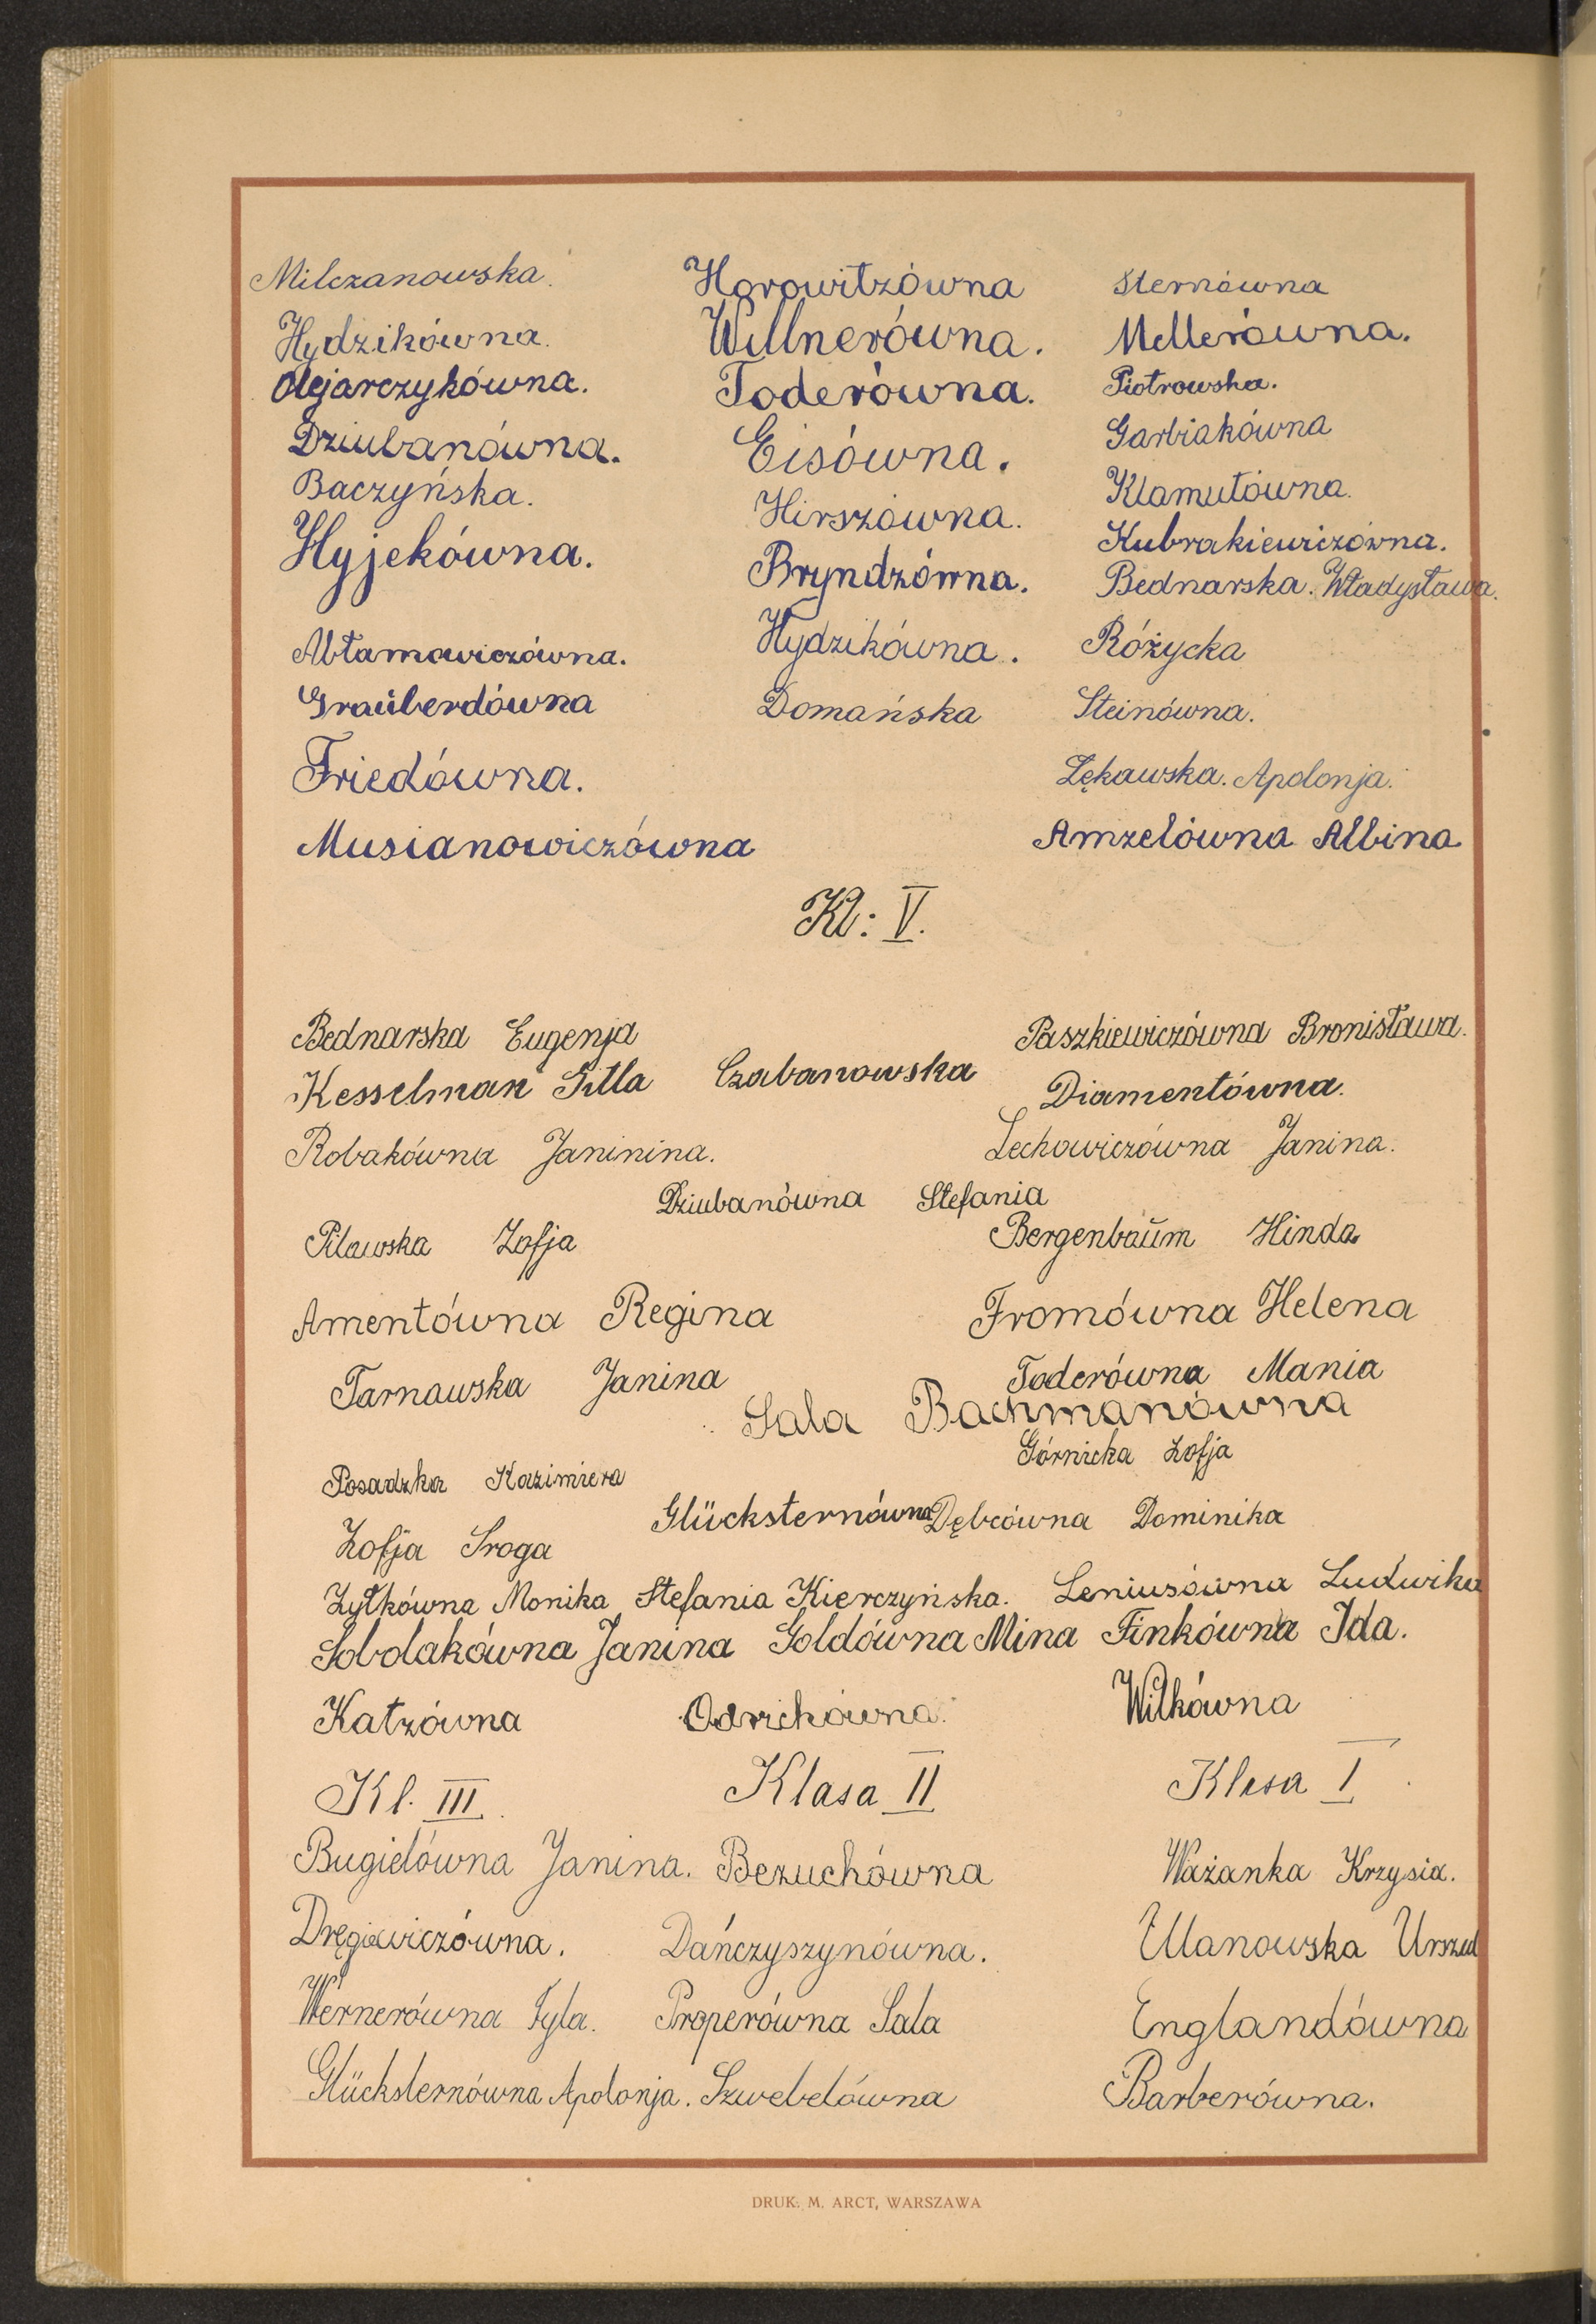 Milczanowska. Horowitzówna Sternówna
Hydzikówna. Willnerówna. Mellerówna.
Olejarczykówna. Toderówna. Piotrowska.
Dziubanówna. Eisówna. Garbiakówna
Baczyńska. Hirszówna. Klamutówna.
Hyjekówna. Bryndzówna. Kubrakiewiczówna.
Bednarska. Władysława.
Abłamowiczówna. Hydzikówna. Różycka
Graüberdówna Domańska Steinówna.
Friedówna. Zękawska. Apolonja.
Musianowiczówna Amzelówna Albina
Kl: V.
Bednarska Eugenja Paszkiewiczówna Bronisława.
Kesselman Gitla Czabanowska Diamentówna.
Robakówna Janinina. Lechowiczówna Janina.
Dziubanówna Stefania
Pilawska Zofja Bergenbaŭm Hinda
Amentówna Regina Fromówna Helena
Tarnawska Janina Toderówna Mania
Sala Bachmanówna
Górnicka Zofja
Posadzka Kazimiera
Glücksternówna Dębcówna Dominika
Zofja Sroga
Żytkówna Monika Stefania Kierczyńska. Leniusówna Ludwika
Sobolakówna Janina Goldówna Mina Finkówna Ida.
Katzówna Odrzchówna. Wilkówna
Kl. III. Klasa II Klasa I
Bugielówna Janina. Bezuchówna Ważanka Krzysia.
Dręgiewiczówna. Dańczyszynówna. Ulanowska Urszul
Wernerówna Tyla. Properówna Sala Englandówna
Glücksternówna Apolonja. Szwebelówna Barberówna.
DRUK: M. ARCT, WARSZAWA